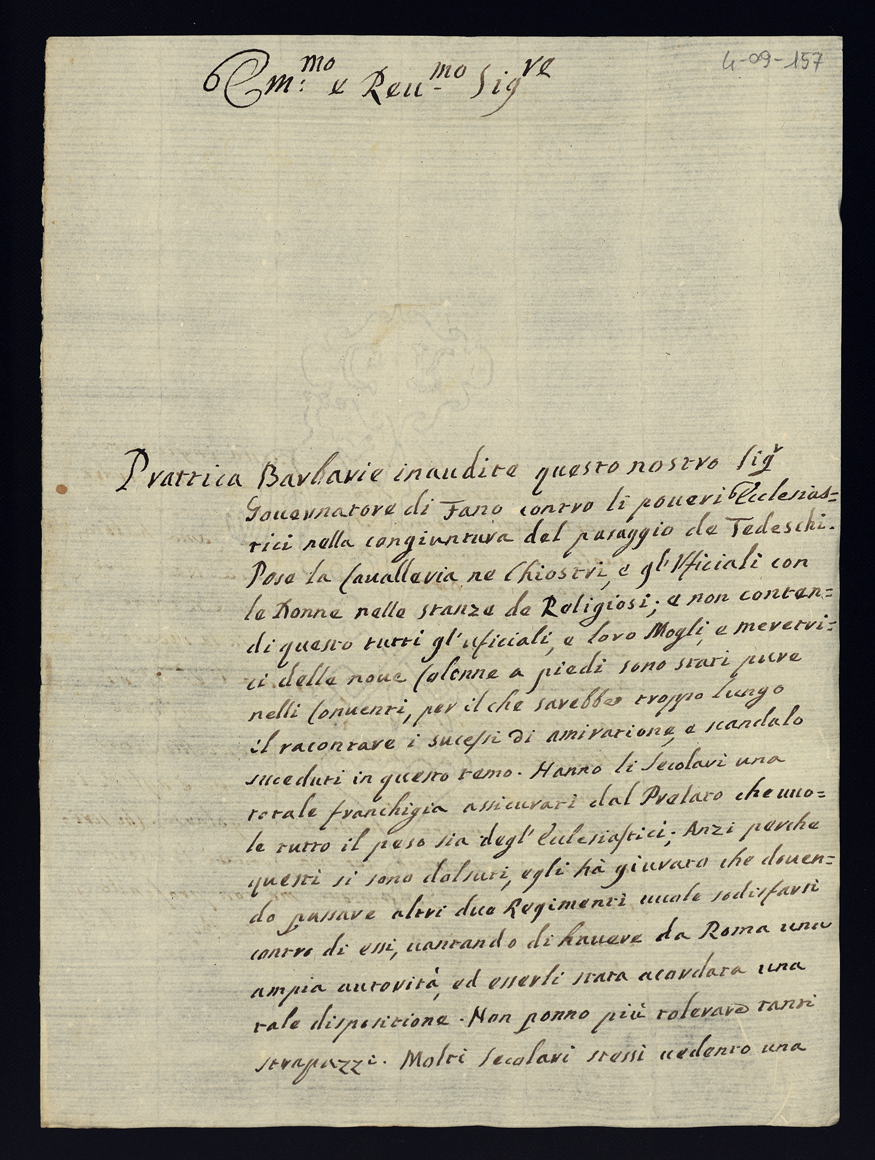 4-09-157
Em:mo e Reu-mo Sigre
Prattica Barbarie inaudite questo nostro Sigr
Gouernatore di Fano contro li poueri Ecclesias=
tici nella congiuntura del pasaggio de Tedeschi.
Pose la Caualleria ne Chiostri, e gl'Vficiali con
le Donne nelle stanze de Religiosi; e non conten=
di questo tutti gl'uficiali, e loro Mogli, e meretri=
ci delle noue Colonne a piedi sono stati pure
nelli Conuenti, per il che sarebbe troppo lungo
il racontare i sucessi di amiratione, e scandalo
suceduti in questo temo. Hanno li Secolari una
totale franchigia assicurati dal Prelato che uuo=
le tutto il peso sia degl'Eclesiastici; Anzi perche
questi si sono dolsuti, egli hà giurato che douen=
do passare altri due Regimenti uuole sodisfarsi
contro di essi, uantando di hauere da Roma una
ampia autorità, ed esserli stata acordata una
tale dispositione. Non ponno più tolerare tanti
strapazzi. Molti Secolari stessi uedento una